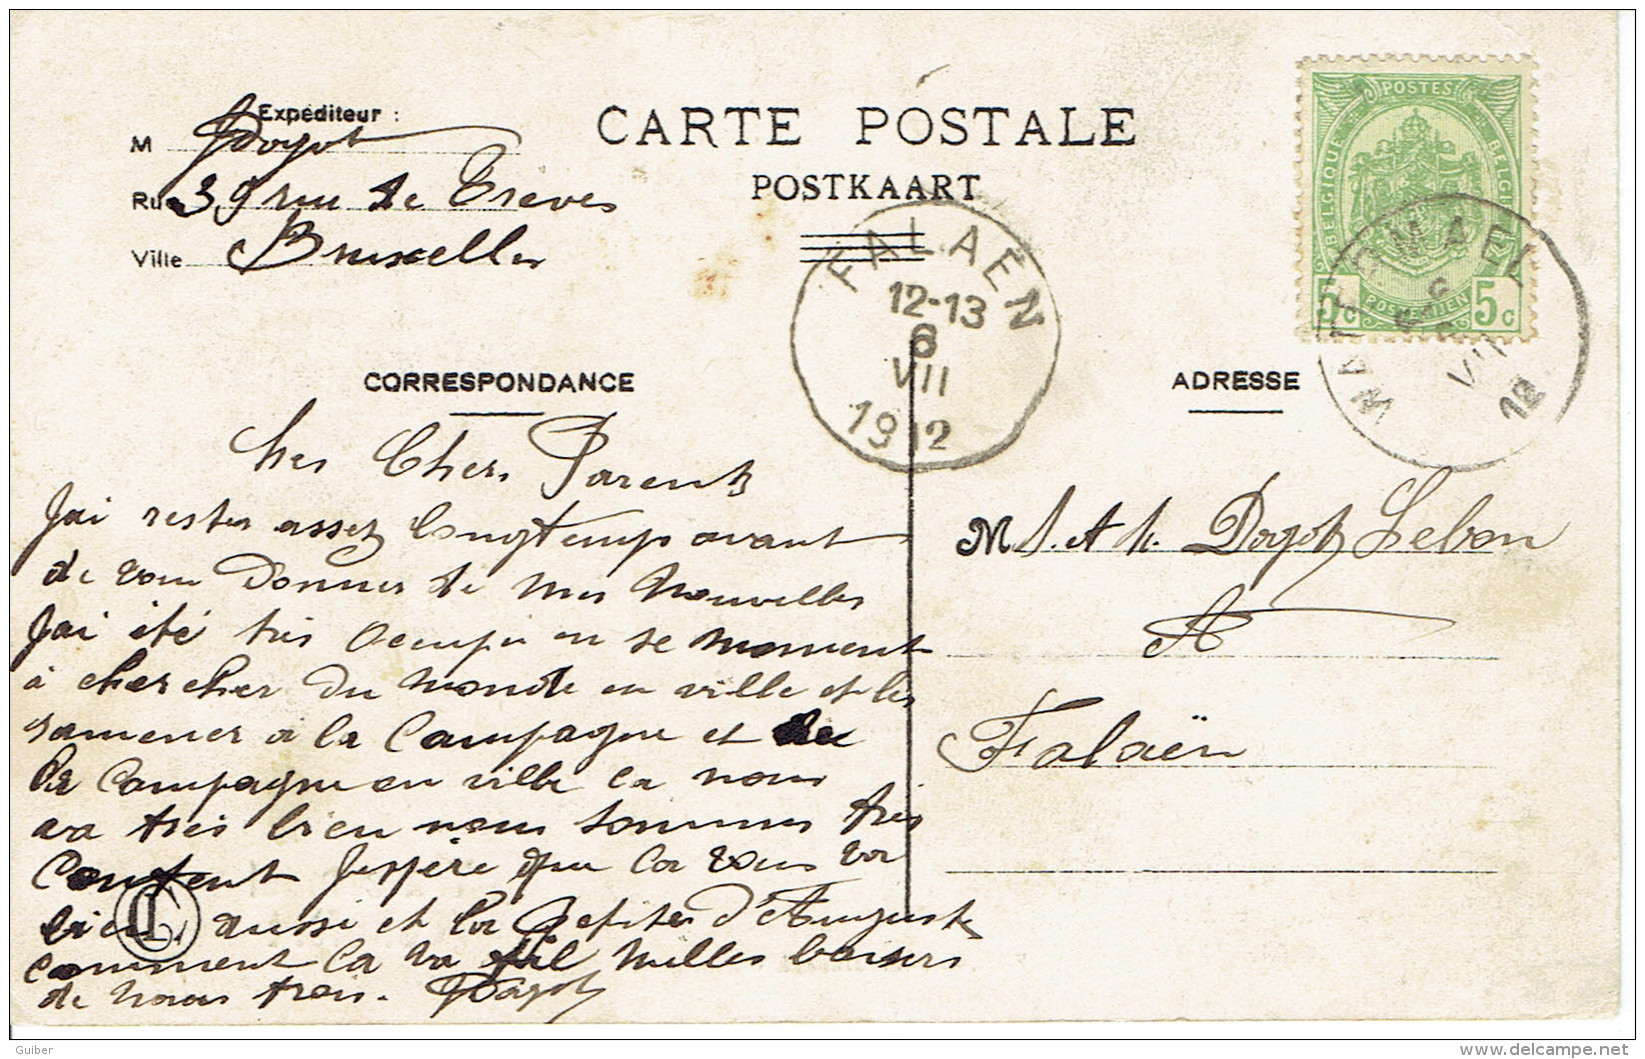 Expéditeur :
M Dogot
Rue 39 rue de Treves
Ville Bruxelles
CARTE POSTALE
POSTKAART
POSTES
BELGIQUE
BELGIË
5c POSTERIJEN 5c
WATERMAEL
VII
12
FALAËN
12-13
6
VII
1912
CORRESPONDANCE
ADRESSE
Cher Parents
Jai rester assez longtemps avant
de vous donner de mes nouvelles
Jai été très Occupé en se moment
à chercher du monde en ville et les
ramener a la Campagne et de
la Campagne en ville ca nous
va très bien nous sommes très
Content Jespère que ca vous va
bien aussi et la petites d'Auguste
comment ca va til milles baisers
de nous trois. Dogot
M Dogot Lebon
A
Falaën
Guiber
delcampe.net